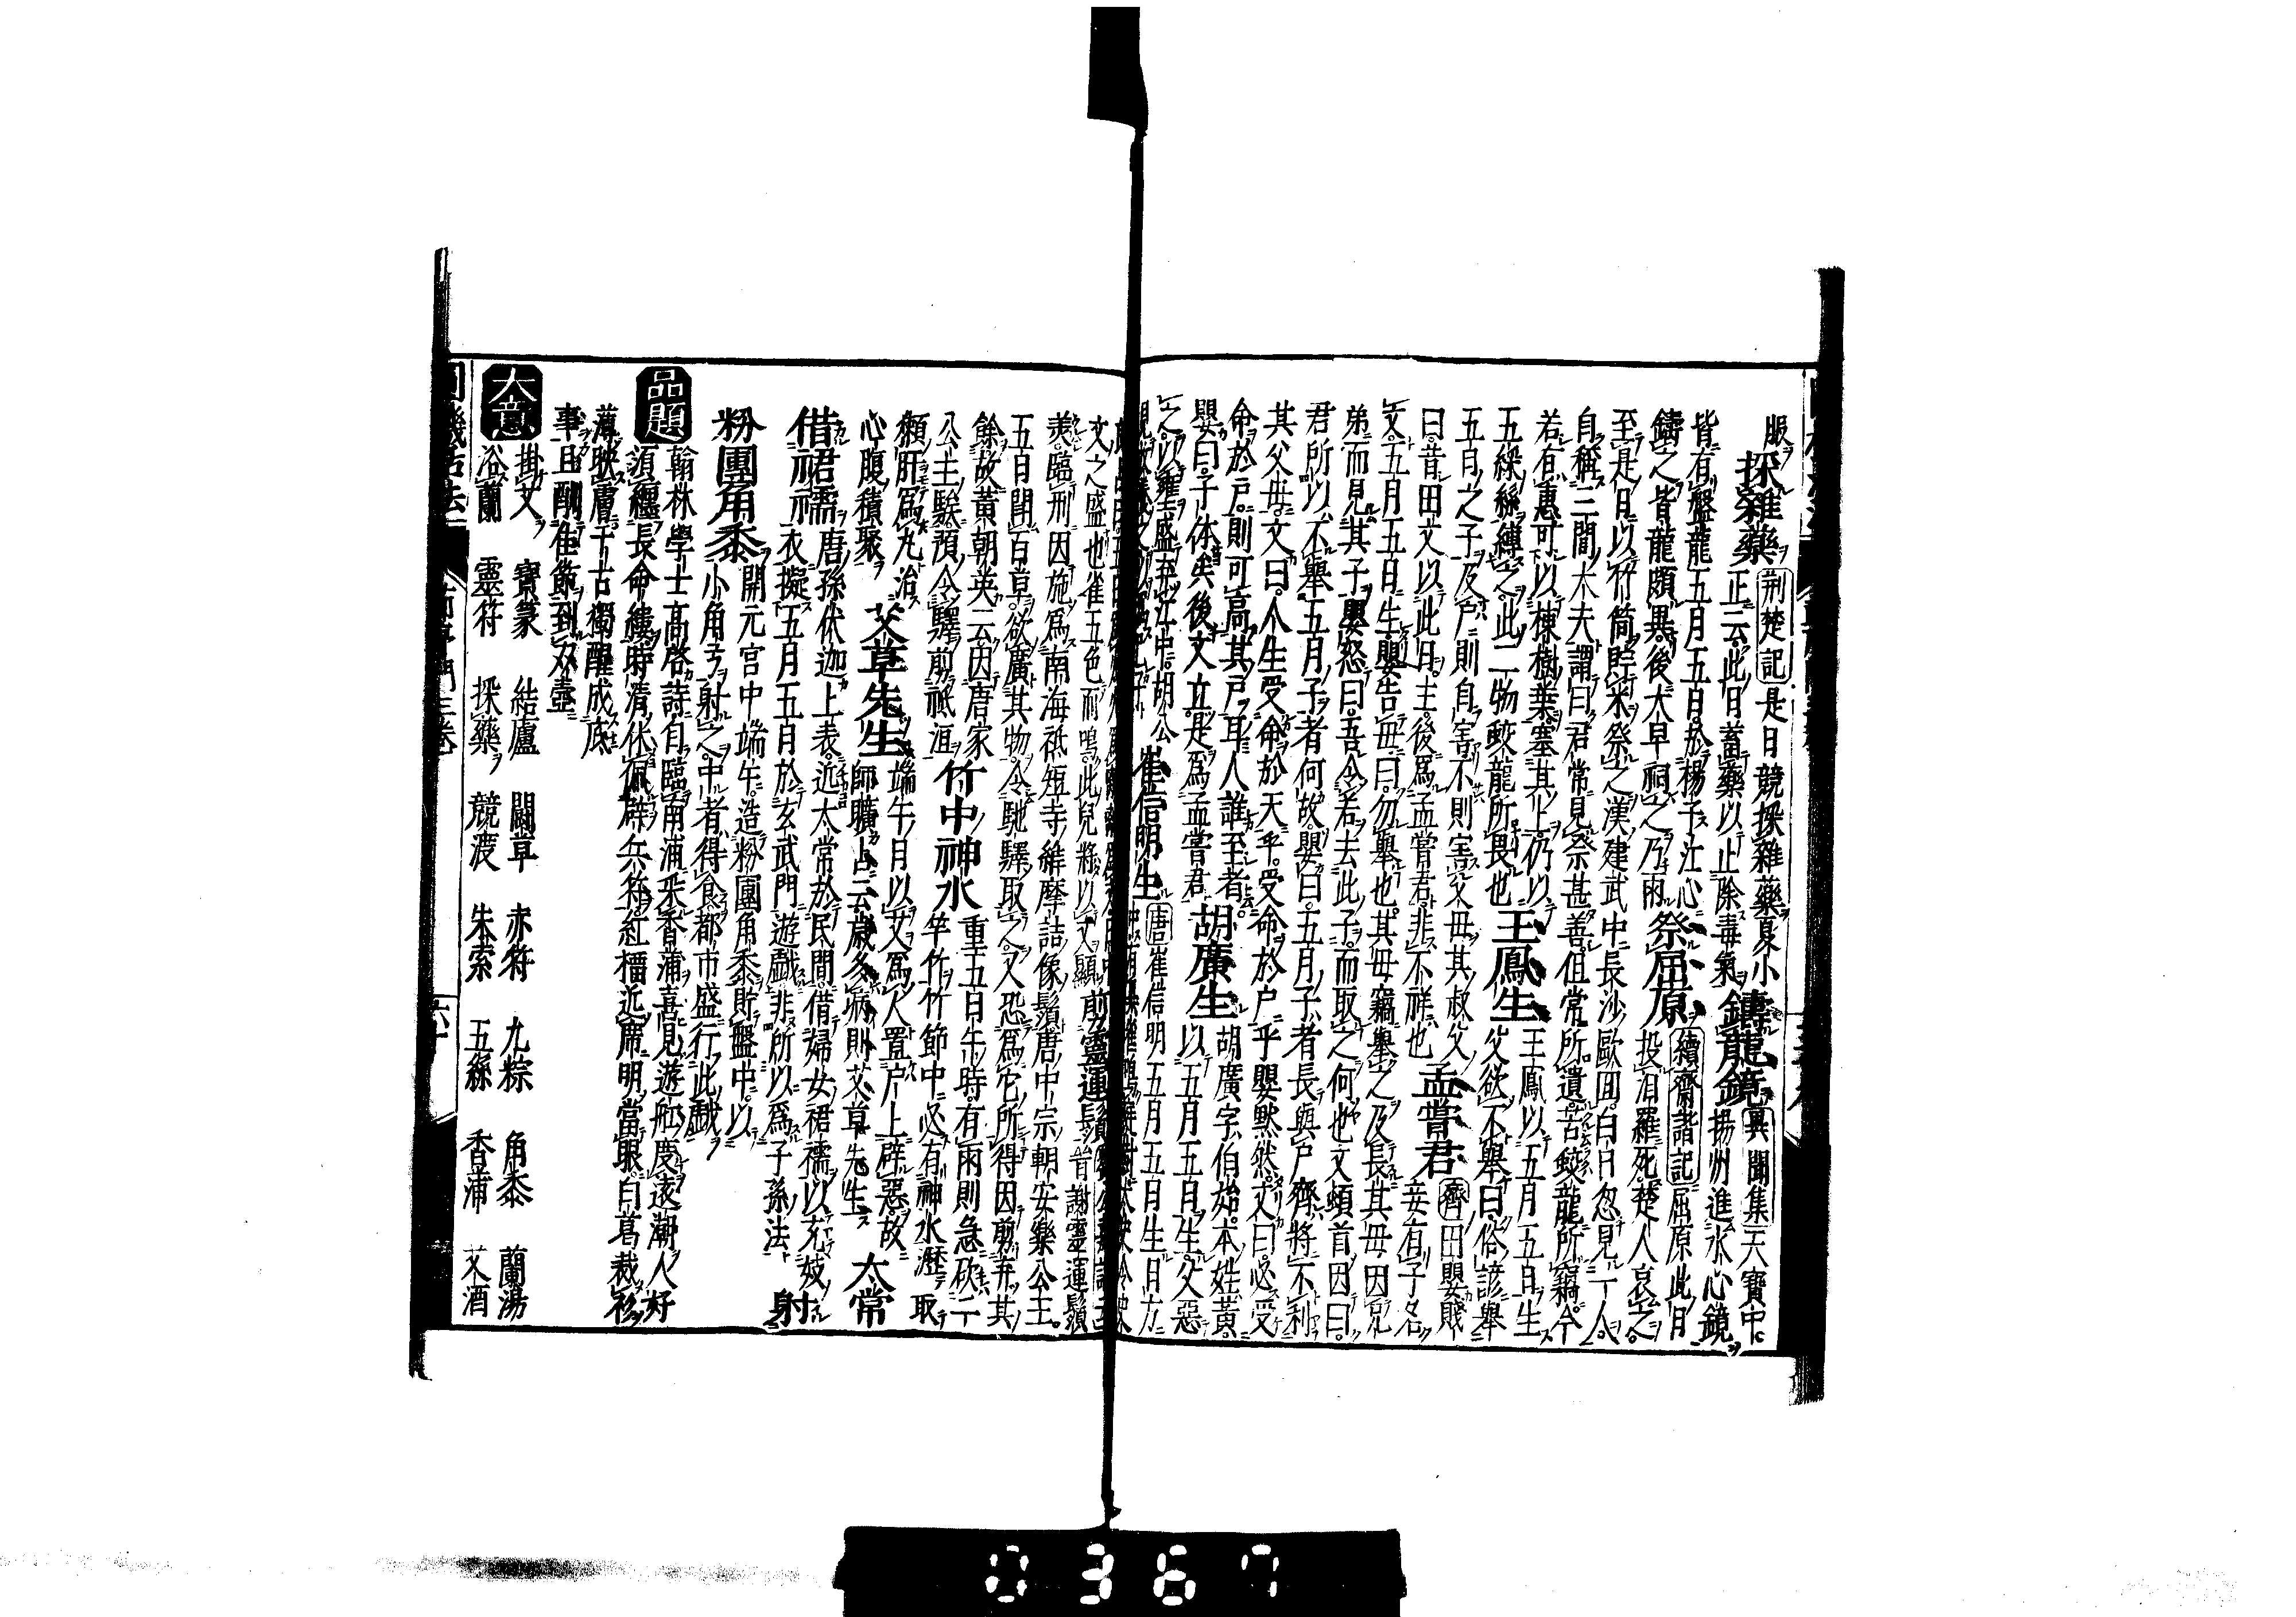 服 採雜藥 荊楚記 是日競採雜藥夏小
正云此日蓄藥以止除毒氣 鑄龍鏡 異聞集 天寶中
揚州進水心鏡
皆有盤龍五月五日於楊子江心
鑄之皆龍頗異後大旱祠之乃雨 祭屈原 續齊諧記 屈原此月
投汨羅死楚人哀之
至是日以竹筒貯米祭之漢建武中長沙歐回白日忽見一人
自稱三閭大夫謂曰君常見祭甚善但常所遺苦蛟龍所竊今
若有惠可以楝樹葉塞其上仍以
五綵絲縛之此二物蛟龍所畏也 王鳳生 王鳳以五月五日生
父欲不舉曰俗諺舉
五日之子及戶則自害不則害父母其叔父
曰昔田文以此日生後爲孟嘗君非不祥也 孟嘗君 齊田嬰賤
妾有子名
文五月五日生嬰告母曰勿舉也其母竊舉之及長其母因兄
弟而見其子嬰怒曰吾令若去此子而取之何也文頓首因曰
君所以不舉五月子者何故嬰曰五月子者長與戶齊將不利
其父母文曰人生受命於天乎受命於戶乎嬰默然文曰必受
命於戶則可高其戶耳人誰至者
嬰曰子休矣後文立是爲孟嘗君 胡廣生 胡廣字伯始本姓黃
以五月五日生父惡
之以甕盛弃江中胡公 崔信明生 唐崔信明五月五日生日方
文之盛也雀五色而鳴此兒將以文顯 剪靈運鬚 晉謝靈運鬚
美臨刑因施爲南海祗短寺維摩詰像鬚唐中宗朝安樂公主
五日鬭百草欲廣其物令馳驛取之又恐爲它所得因剪弃其
餘故黃朝英云因唐家
公主騃預令驛剪祇洹 竹中神水 重五日午時有雨則急砍一
竿竹竹節中必有神水瀝取
獺肝爲丸治
心腹積聚 艾草先生 端午月以艾爲人置戶上辟惡故
師曠占云歲多病則艾草先生 太常
借裙襦 唐孫伏迦上表近太常於民間借婦女裙襦以充妓
衣擬五月五日於玄武門遊戲非所以爲子孫法 射
粉團角黍 開元宮中端午造粉團角黍貯盤中以
小角弓射之中者得食都市盛行此戲
品題 翰林學士高啓詩自臨南浦采香蒲喜見遊舩慶返潮人好
須纏長命縷時清休佩辟兵符紅榴近席明當眼白葛裁衫
薄映膚千古獨醒成底
事且酬佳節到双壺
大意 掛艾 寶篆 結廬 鬭草 赤符 九粽 角黍 蘭湯
浴蘭 靈符 採藥 競渡 朱索 五絲 香蒲 艾酒
0367